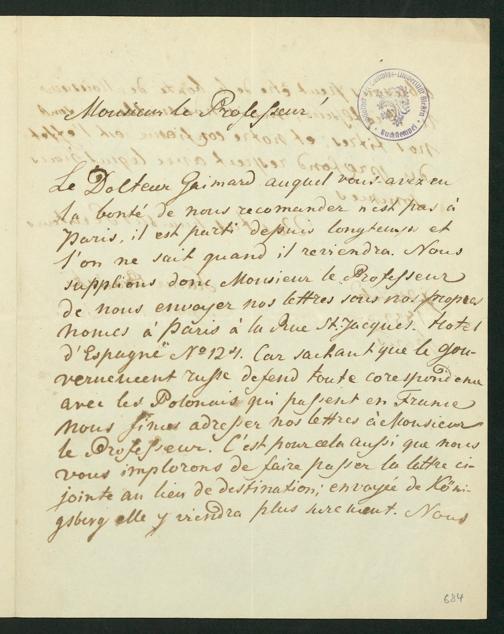 Monsieur le Professeur!
Le Docteur Gaimard auquel vous avez eu
la bonté de nous recomander n'est pas à
Paris, il est parti depuis longtems et
l'on ne sait quand il reviendra. Nous
supplions donc Monsieur le Professeur
de nous envoyer nos lettres sous nos propres
nomes à Paris à la Rue St. Jacques. Hotel
d'Espagne No 124. Car sachant que le gou-
vernement russe defend toute corespondence
avec les Polonais qui passent en France
nous fimes adresser nos lettres à Monsieur
le Professeur. C'est pour cela aussi que nous
vous implorons de faire passer la lettre ci-
jointe au lieu de destination; envoyée de Köni-
gsberg elle y viendra plus surement. Nous
684